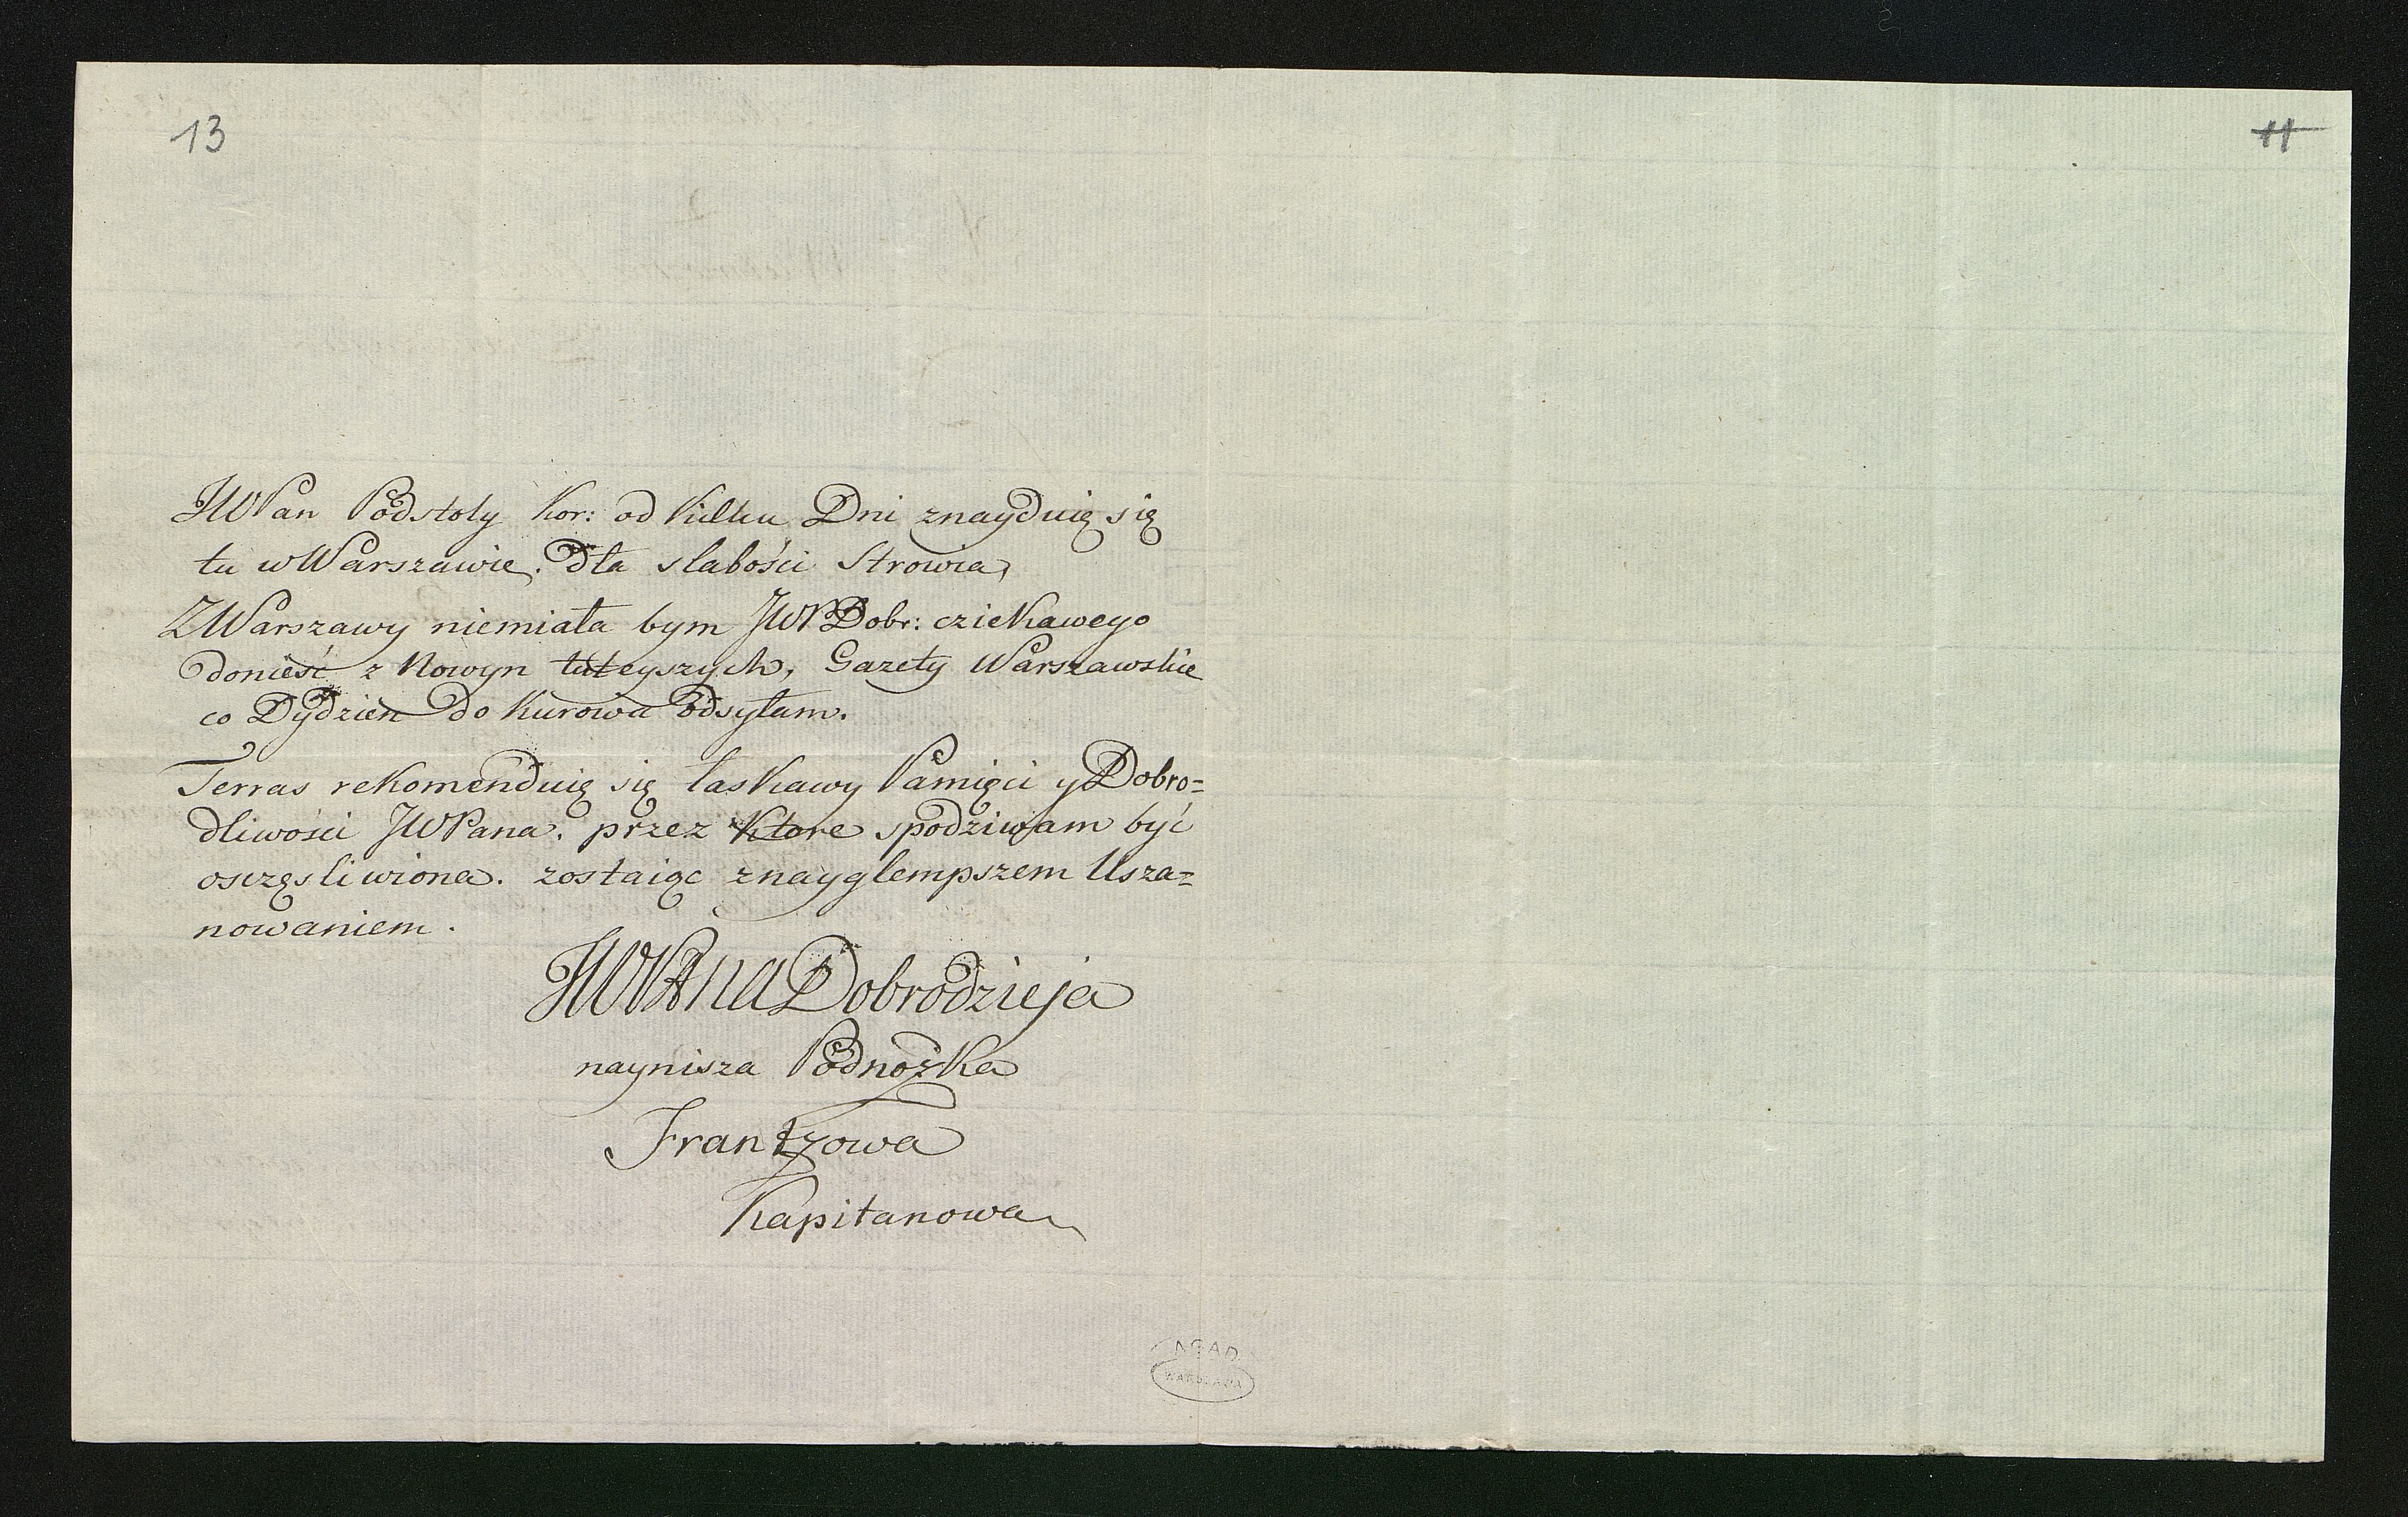 13
11
JWPan Podstoly Kor: od Kilku Dni znayduię się
tu w Warszawie. Dla slabości Strowia,
Z Warszawy niemiała bym JWP Dobr: cziekawego
donieść z Nowyn tuteyszych, Gazety Warszawskie
co Dydzien do Kurowa odsyłam.
Terras rekomenduię się łaskawy Pamięci y Dobro=
dliwości JWPana. przez Ktore spodziwam być
osczęsliwiona. zostaiąc znayglempszem Usza=
nowaniem.
JWPAna Dobrodzieja
naynisza Podnożka
Frantzowa
Kapitanowa
AGAD
WARSZAWA